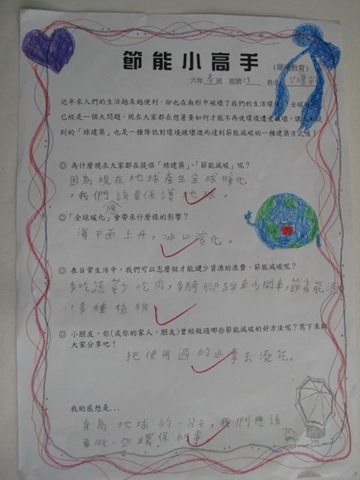 節能小高手
(環境教育)
六年 班 座號 姓名
近年來人們的生活越來越便利，卻也在無形中破壞了我們的生活環境，全球
已經是一個大問題，現在大家都在想著要如何才能不再使環境遭受破壞，
到的「綠建築」也是一種降低對環境破壞進而達到節能減碳的一種建築方式！
◎ 為什麼現在大家都在提倡「綠建築」、「節能減碳」呢？
因為現在地球產生全球暖化
，我們該要保護地球。
◎「全球暖化」會帶來什麼樣的影響？
海平面上升，冰山溶化。
◎ 在日常生活中，我們可以怎麼做才能減少資源的浪費、節能減碳呢？
多吃蔬 少吃肉，多騎腳踏車少開車，節省能源
，多種植物
◎ 小朋友，你(或你的家人、朋友)曾經做過哪些節能減碳的好方法呢？寫下來跟
大家分享吧！
把使用過的水拿去澆花。
我的感想是…
身為地球的一分子，我們應該
要做一些環保的事